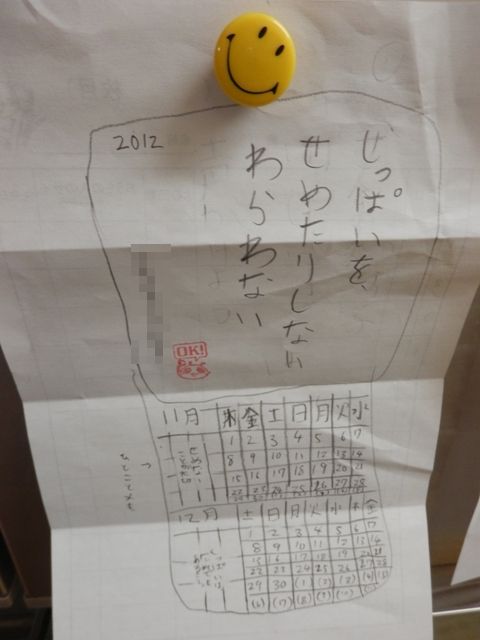 2012
せっぱいを、
せめたりしない
わらわない
OK!
11月
木 金 土 日 月 火 水
1 2 3 4 5 6 7
8 9 10 11 12 13 14
15 16 17 18 19 20 21
22 23 24 25 26 27 28
12月
土 日 月 火 水 木 金
1 2 3 4 5 6 7
8 9 10 11 12 13 14
15 16 17 18 19 20 21
22 23 24 25 26 27 28
29 30 (1) (2) (3) (4) (5)
(6) (7) (8) (9) (10)